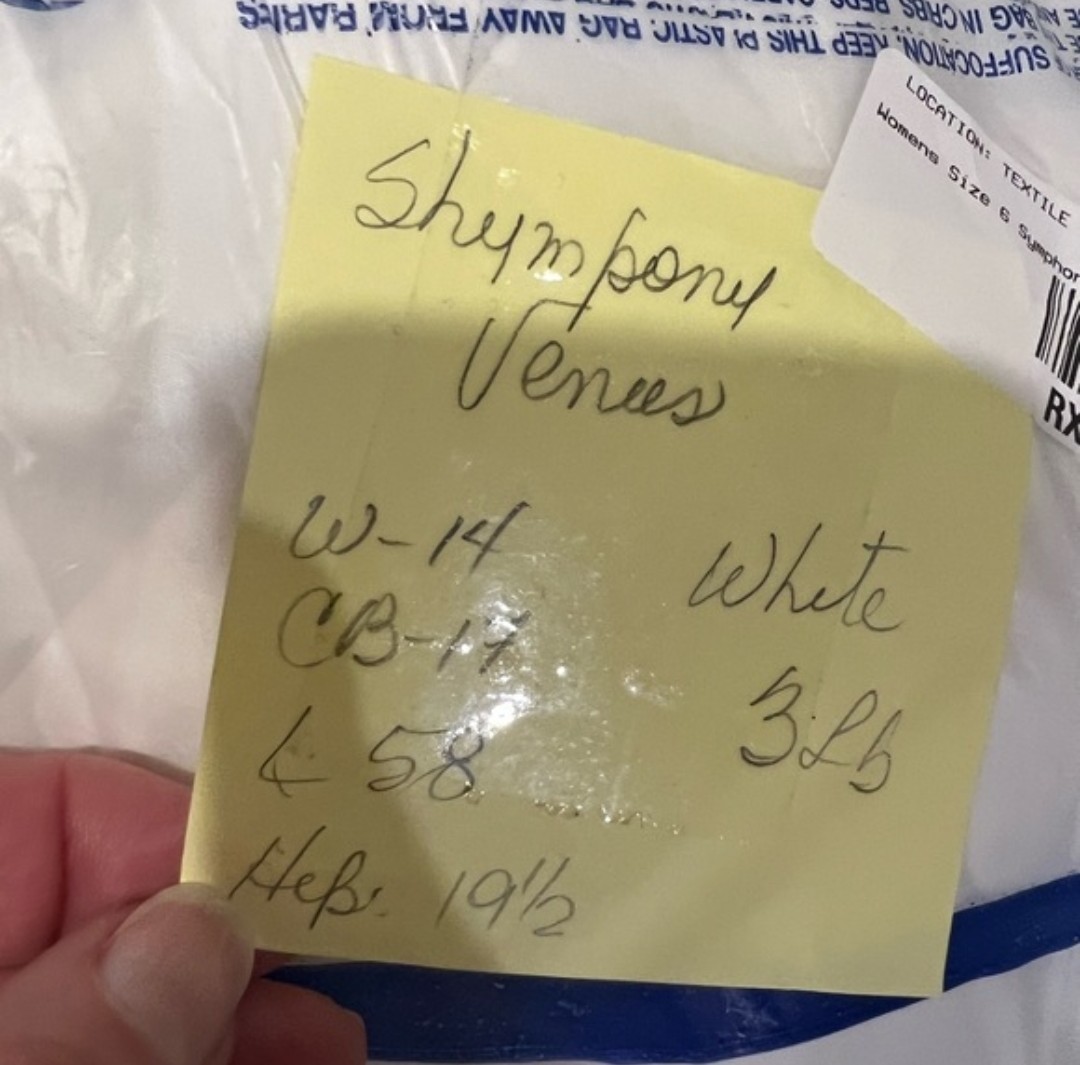 SUFFOCATION, KEEP THIS PLASTIC BAG AWAY FROM BABIES
LOCATION: TEXTILE
Womens Size 6 Symphon
RX
Shympony
Venus
W-14
CB-17
L 58
Heps. 19 1/2
White
3 Lb